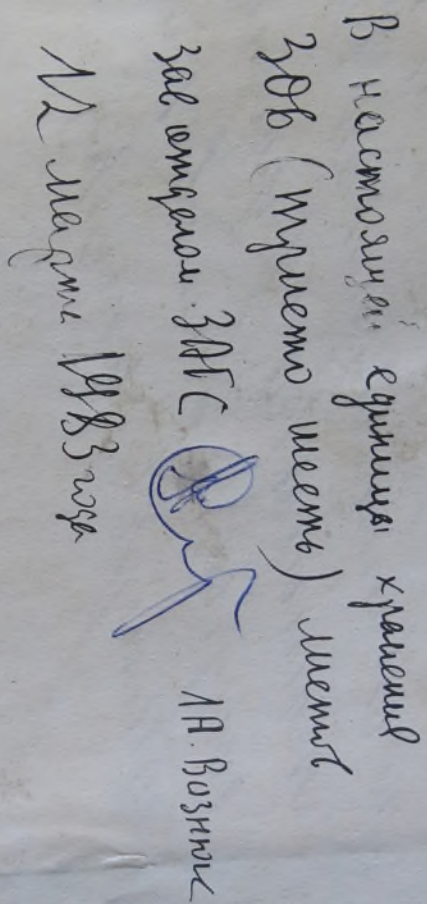 В настоящей единицы хранения
306 (триста шесть) листов
Зав отделом ЗАГС Л.А. Вознюк
12 марта 1983 года